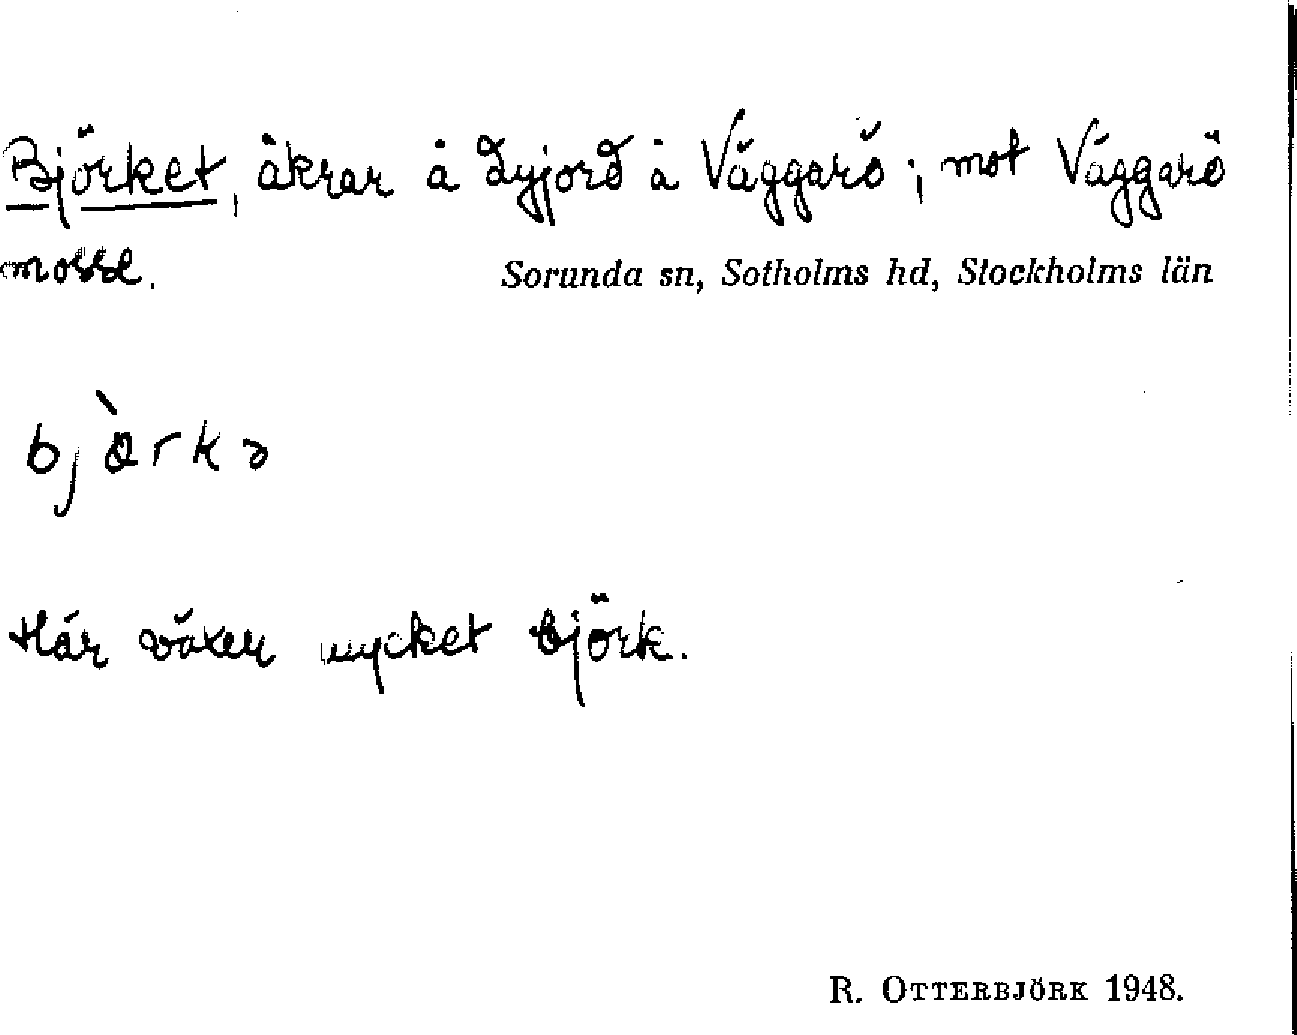 Björket, åkrar å dyjord å Väggarö; mot Väggarö
mosse.
Sorunda sn, Sotholms hd, Stockholms län
bjɑ̀rkə
Här växer mycket björk.
R. OTTERBJÖRK 1948.